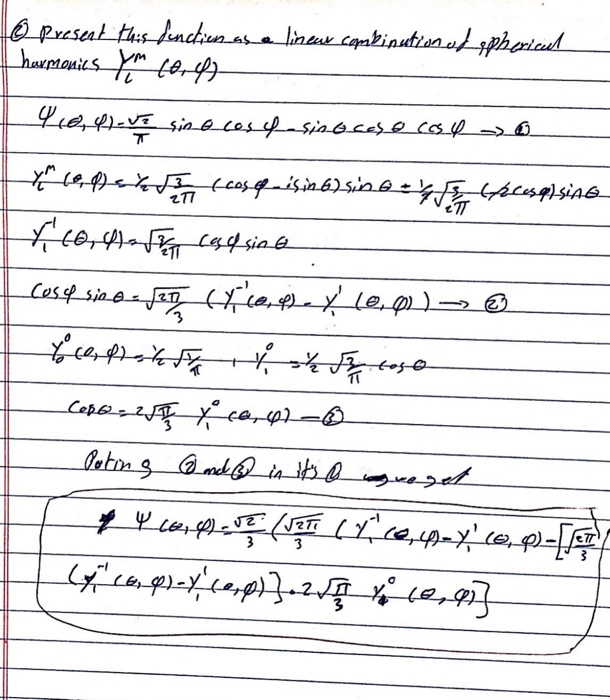 ② Present this function as a linear combination of spherical
harmonics Y_l^m (θ, φ)
Ψ(θ, φ) = √2/π sin θ cos φ - sin θ cos θ cos φ → ①
Y_l^m (θ, φ) = 1/2 √3/2π (cos φ - i sin θ) sin θ = √3/2π cos φ) sin θ
Y_1^-1 (θ, φ) = √3/2π cos φ sin θ
cos φ sin θ = √2π/3 (Y_1^-1 (θ, φ) - Y_1^1 (θ, φ)) → ②
Y_0^0 (θ, φ) = 1/2 √1/π , Y_1^0 = 1/2 √3/π cos θ
cos θ = 2√π/3 Y_1^0 (θ, φ) - ③
Puting ② and ③ in it's ① we get
Ψ (θ, φ) = √2/3 (√2π/3 (Y_1^-1 (θ, φ) - Y_1^1 (θ, φ) - [√2π/3)
(Y_1^-1 (θ, φ) - Y_1^1 (θ, φ)} . 2√π/3 Y^0 (θ, φ)]